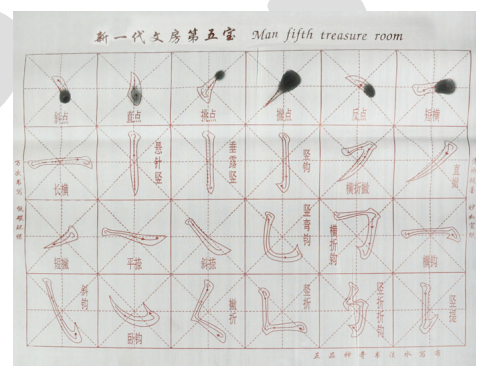 新一代文房第五宝 Man fifth treasure room
斜点 直点 挑点 撇点 反点 短横
长横 悬针竖 垂露竖 竖钩 横折撇 直撇
短撇 平捺 斜捺 竖弯钩 横折钩 横钩
斜钩 卧钩 撇折 竖折 竖折折钩 竖提